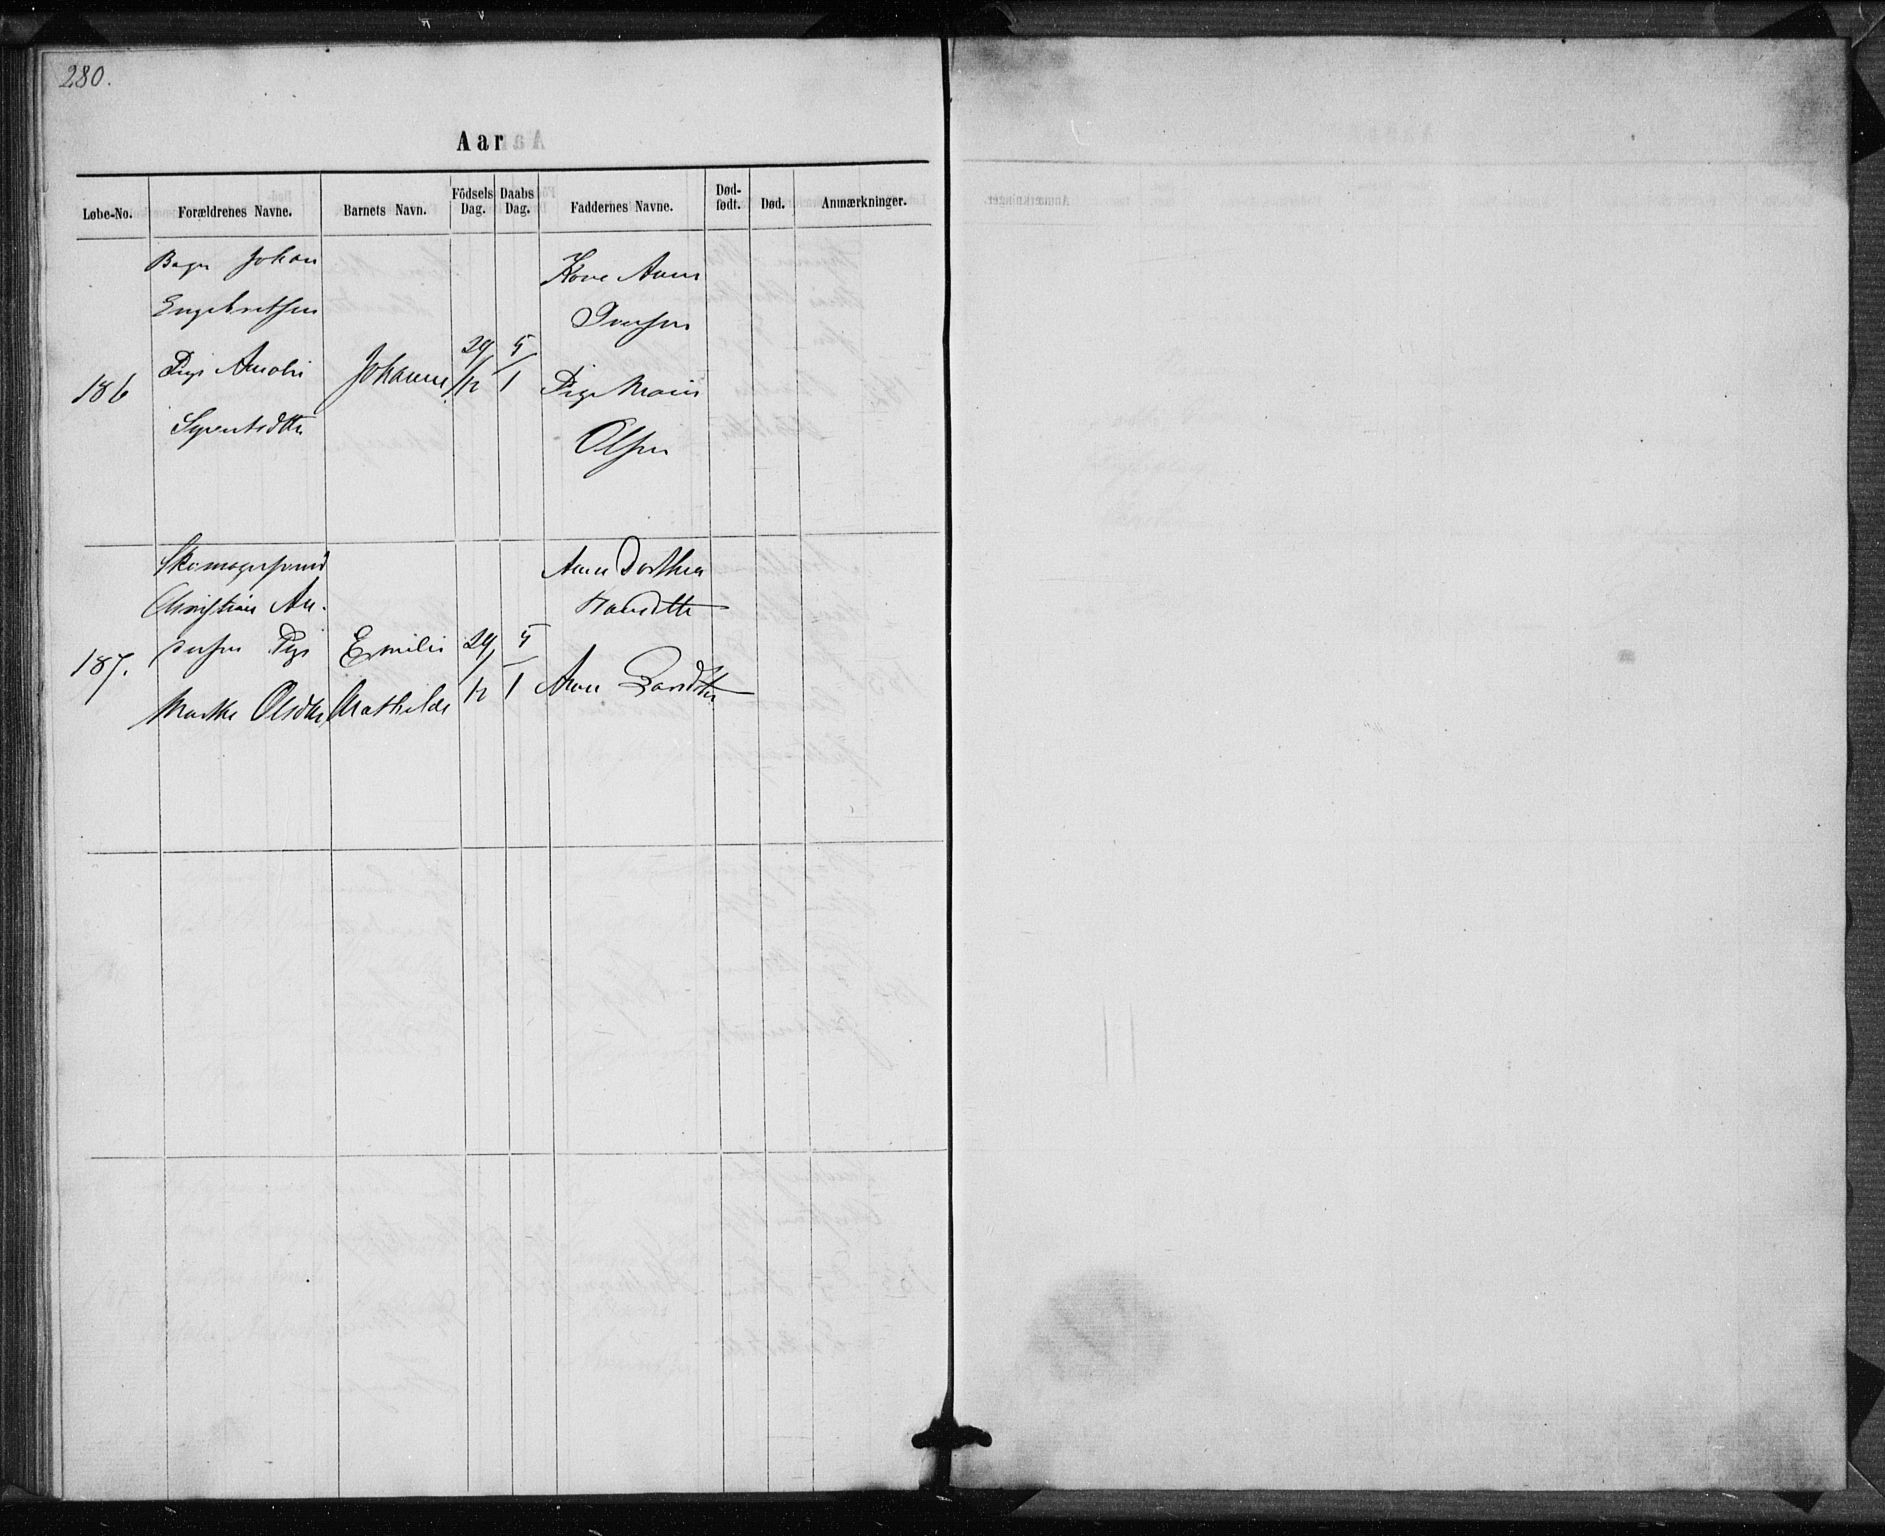 280.
Aar
Løbe-No. Forældrenes Navne. Barnets Navn. Födsels Dag. Daabs Dag. Faddernes Navne. Død-födt. Død. Anmærkninger.
186
Bager Johan
Engebretsen
Pige Amalie
Johanne
29/12
5/1
Kone Anne
Iversen
Pige Marie
Olsen
187.
Skomagersvend
Christian An-
dersen Pige
Marthe Olsdtr
Emilie
Mathilde
29/12
5/1
Anne Dorthea
Hansdtr
Anne Larsdtr